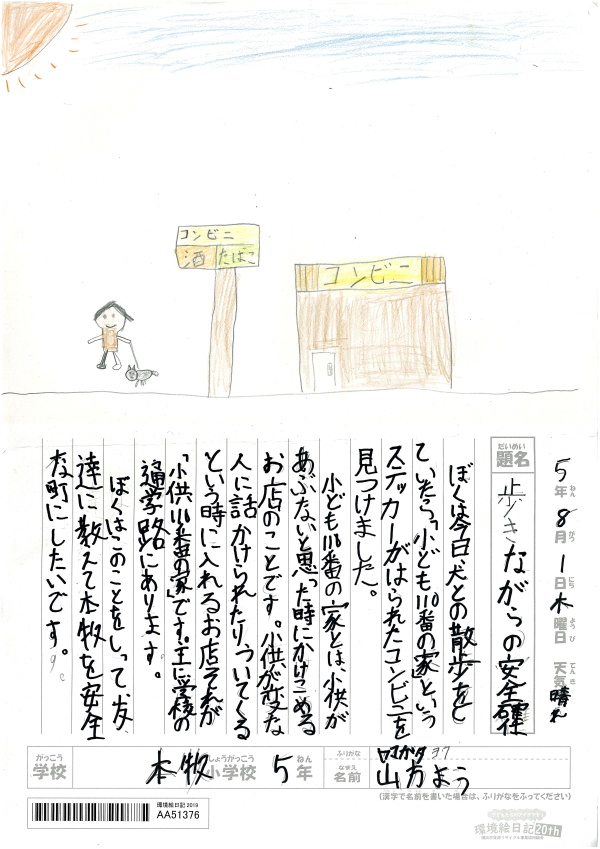 コンビニ
酒 たばこ
コンビニ
5年8月1日木曜日 天気 晴れ
ねん がつ にち ようび てんき
だいめい
題名
歩きながらの安全確
ぼくは今日犬との散歩をし
ていたら「小ども110番の家」という
ステッカーがはられたコンビニを
見つけました。
小ども110番の家とは、小供が
あぶないと思った時にかけこめる
お店のことです。小供が変な
人に話かけられたり、ついてくる
という時に入れるお店それが
「小供110番の家」です。主に学校の
通学路にあります。
ぼくはこのことをしって友
達に教えて本牧を安全
な町にしたいです。
がっこう
学校
本牧 小学校 5年
しょうがっこう ねん
ふりがな
なまえ
名前
山方 よう
(漢字で名前を書いた場合は、ふりがなをふってください)
環境絵日記 2019
AA51376
環境絵日記 20th